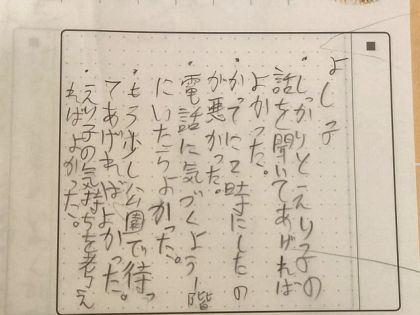 よし子
・しっかりとえり子の
話を聞いてあげれば
よかった。
・かってに2時にしたの
が悪かった。
・電話に気づくよう一階
にいたらよかった。
・もう少し公園で待っ
てあげればよかった。
・えり子の気持ちを考え
ればよかった。